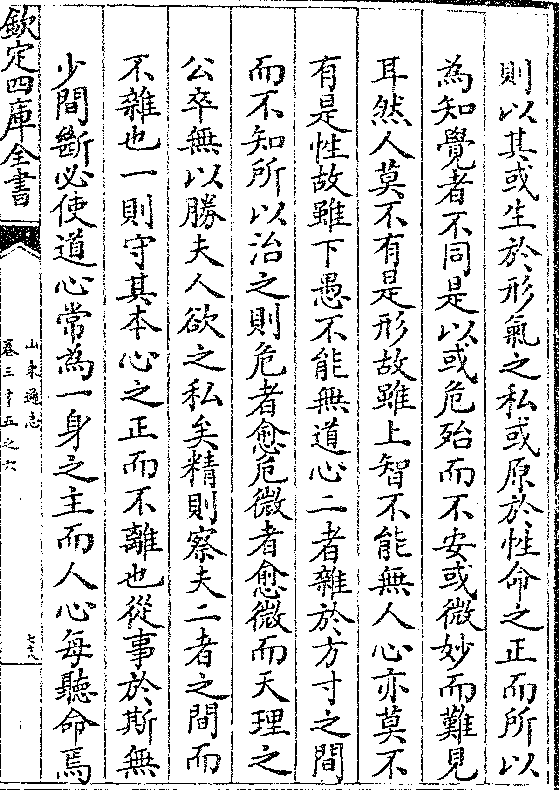 則以其或生於形氣之私或原於性命之正而所以
為知覺者不同是以或危殆而不安或微妙而難見
耳然人莫不有是形故雖上智不能無人心亦莫不
有是性故雖下愚不能無道心二者雜於方寸之間
而不知所以治之則危者愈危微者愈微而天理之
公卒無以勝夫人欲之私矣精則察夫二者之間而
不雜也一則守其本心之正而不離也從事於斯無
少間斷必使道心常為一身之主而人心每聽命焉
欽定四庫全書
山東通志
卷三十五之六